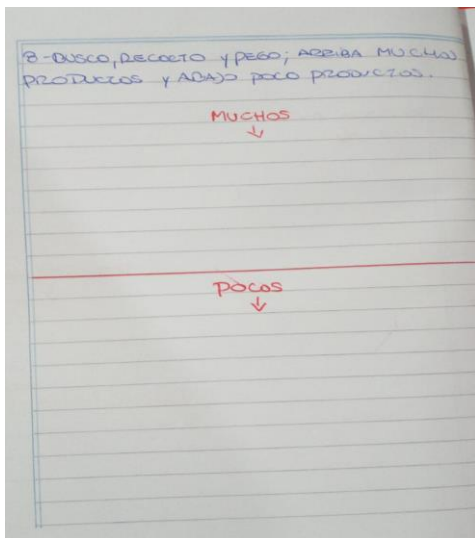 8-BUSCO, RECORTO Y PEGO; ARRIBA MUCHOS
PRODUCTOS Y ABAJO POCO PRODUCTOS.
MUCHOS
↓
POCOS
↓